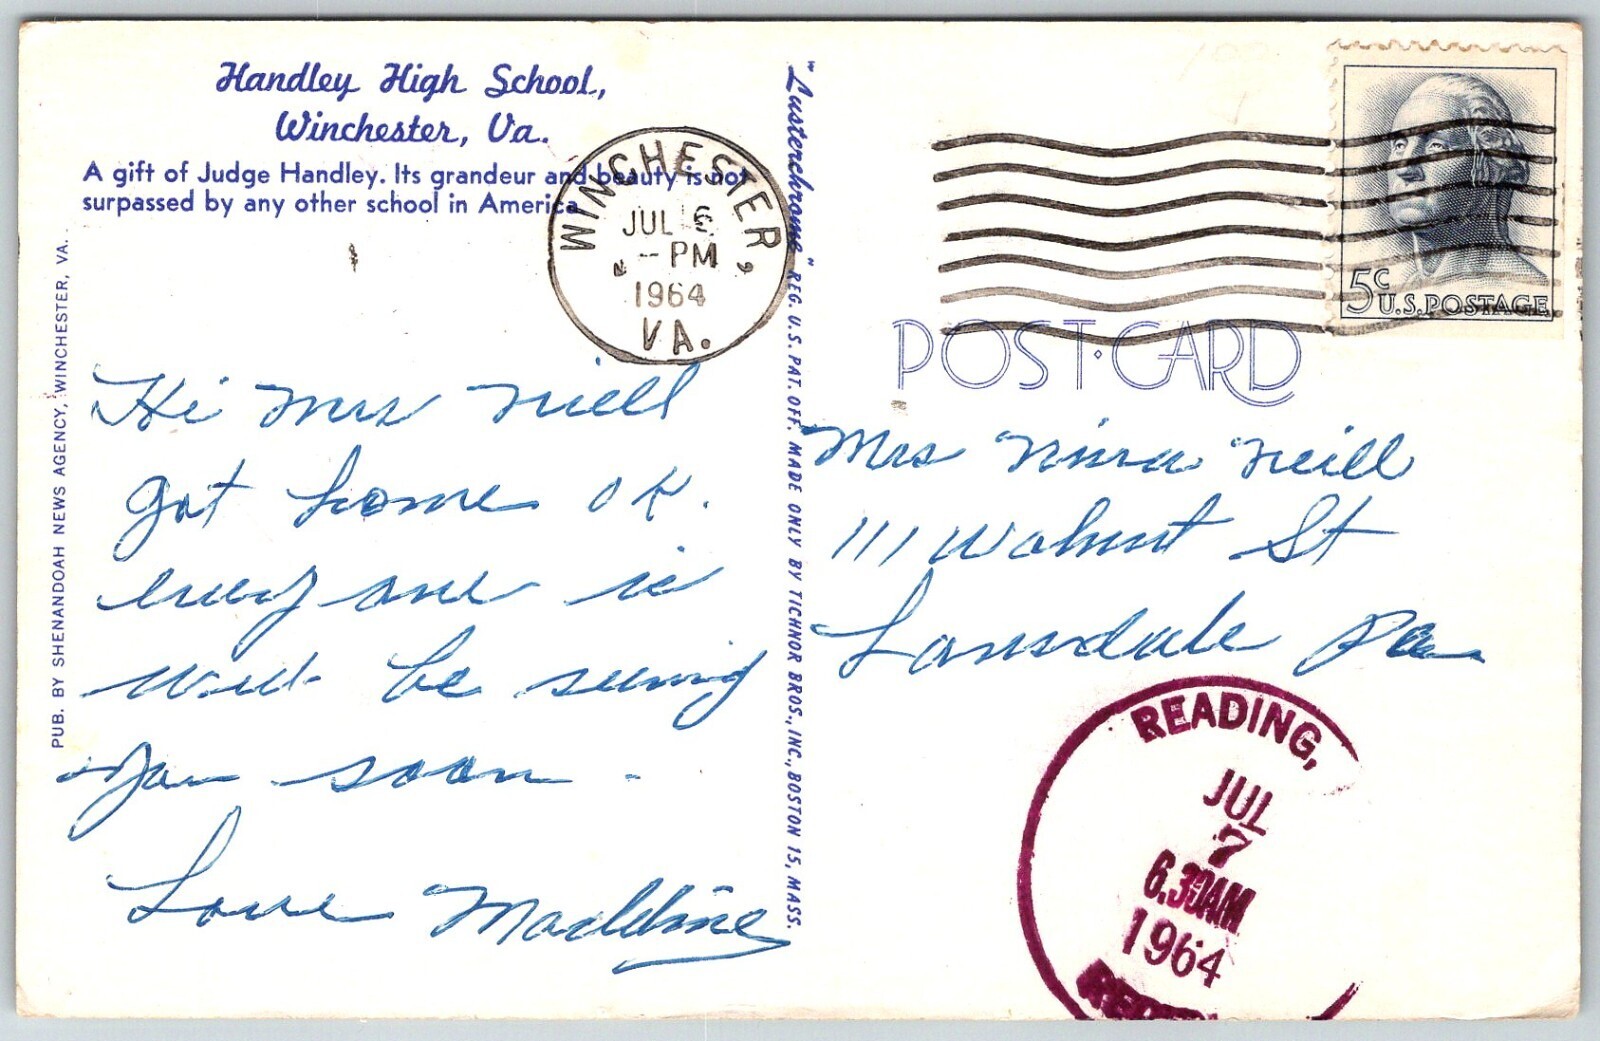 Handley High School,
Winchester, Va.
A gift of Judge Handley. Its grandeur and beauty is not
surpassed by any other school in America
PUB. BY SHENANDOAH NEWS AGENCY, WINCHESTER, VA.
WINCHESTER
JUL 6
- PM
1964
VA.
Hi Mrs Niell
Got home OK.
every one is
well be seeing
you soon -
Love Madeline
"Lusterchrome" REG. U.S. PAT. OFF. MADE ONLY BY TICHNOR BROS., INC., BOSTON 15, MASS.
5c
U.S. POSTAGE
POST·CARD
Mrs Nina Neill
111 Walnut St
Lansdale Pa
READING,
JUL
7
6.30AM
1964